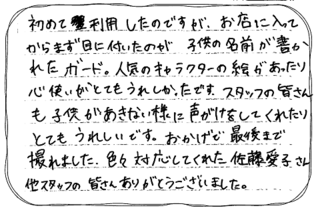 初めて利用したのですが、お店に入って
からまず目に付いたのが 子供の名前が書か
れたボード。人気のキャラクターの絵があったり
心使いがとてもうれしかったです スタッフの皆さん
も 子供があきない様に 声がけをしてくれたり
とてもうれしいです。おかげで 最後まで
撮れました。色々 対応してくれた 佐藤愛子さん
他スタッフの皆さんありがとうございました。